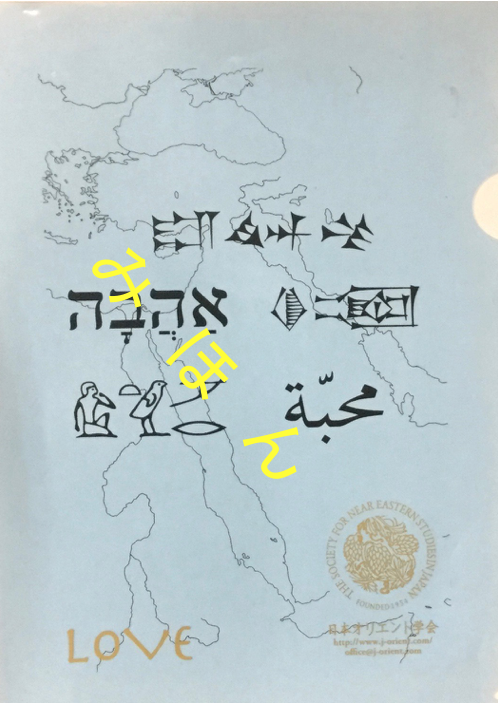 אַהֲבָה
محبّة
みほん
THE SOCIETY FOR NEAR EASTERN STUDIES IN JAPAN
FOUNDED 1954
日本オリエント学会
http://www.j-orient.com/
office@j-orient.com
LOVE